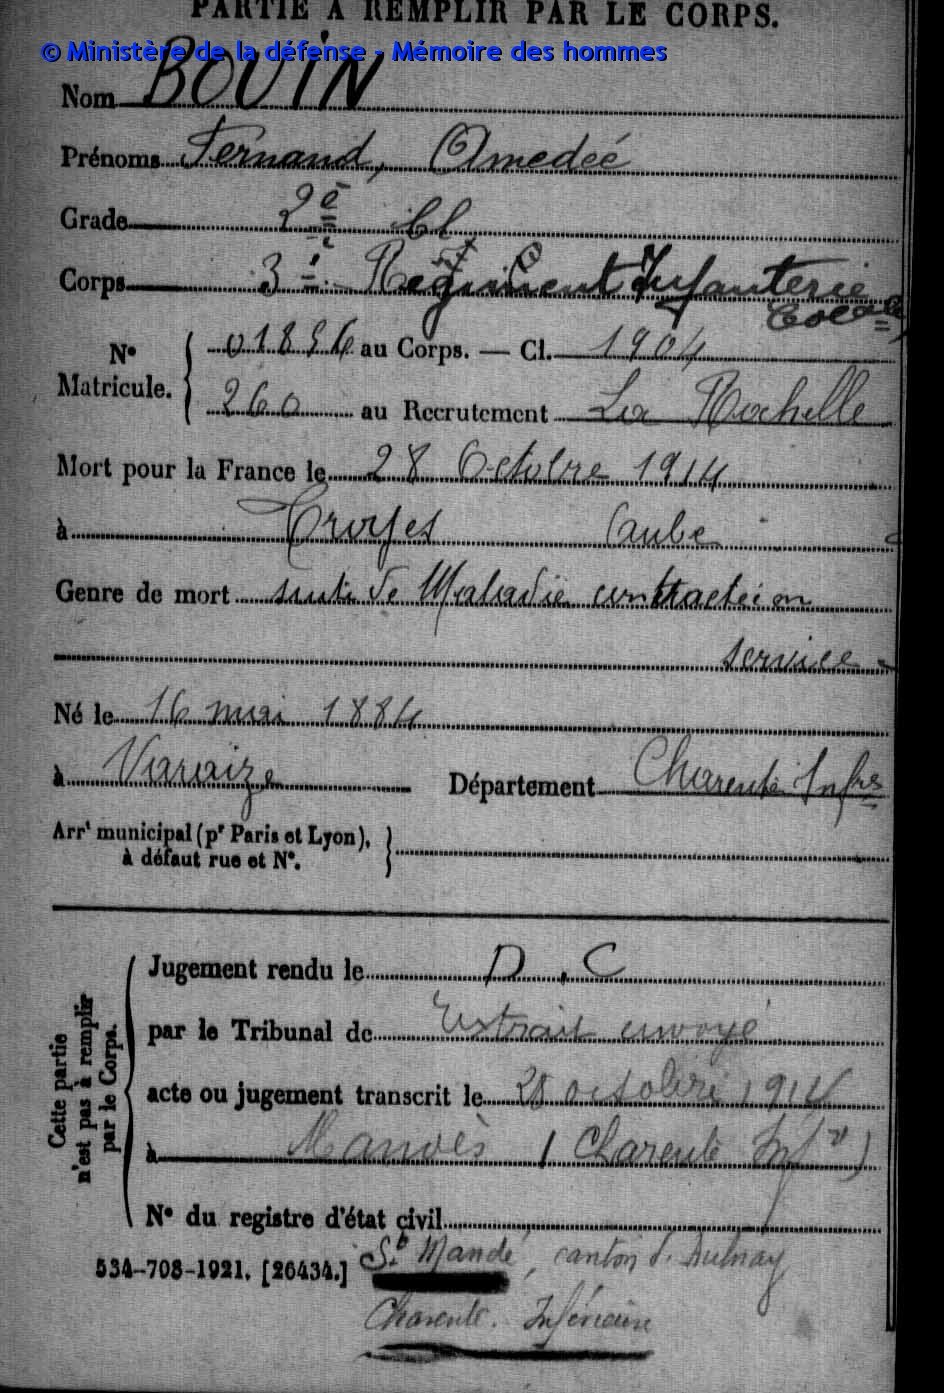 PARTIE À REMPLIR PAR LE CORPS.
© Ministère de la défense - Mémoire des hommes
Nom BOUIN
Prénoms Fernand, Amedée
Grade 2e Cl
Corps 3e Régiment Infanterie
Coloale
No Matricule. { 01856 au Corps. — Cl. 1904
260 au Recrutement La Rochelle
Mort pour la France le 28 Octobre 1914
à Troyes Aube
Genre de mort suite de Maladie contractée en
service
Né le 16 mai 1884
à Varaize Département Charente Infre
Arrt municipal (pr Paris et Lyon),
à défaut rue et No.
Cette partie n'est pas à remplir par le Corps.
Jugement rendu le D.C
par le Tribunal de Extrait envoyé
acte ou jugement transcrit le 28 octobre 1914
à (Charente Infre)
No du registre d'état civil
534-708-1921. [26434.] St Mandé, canton d'Aulnay
Charente. Inférieure